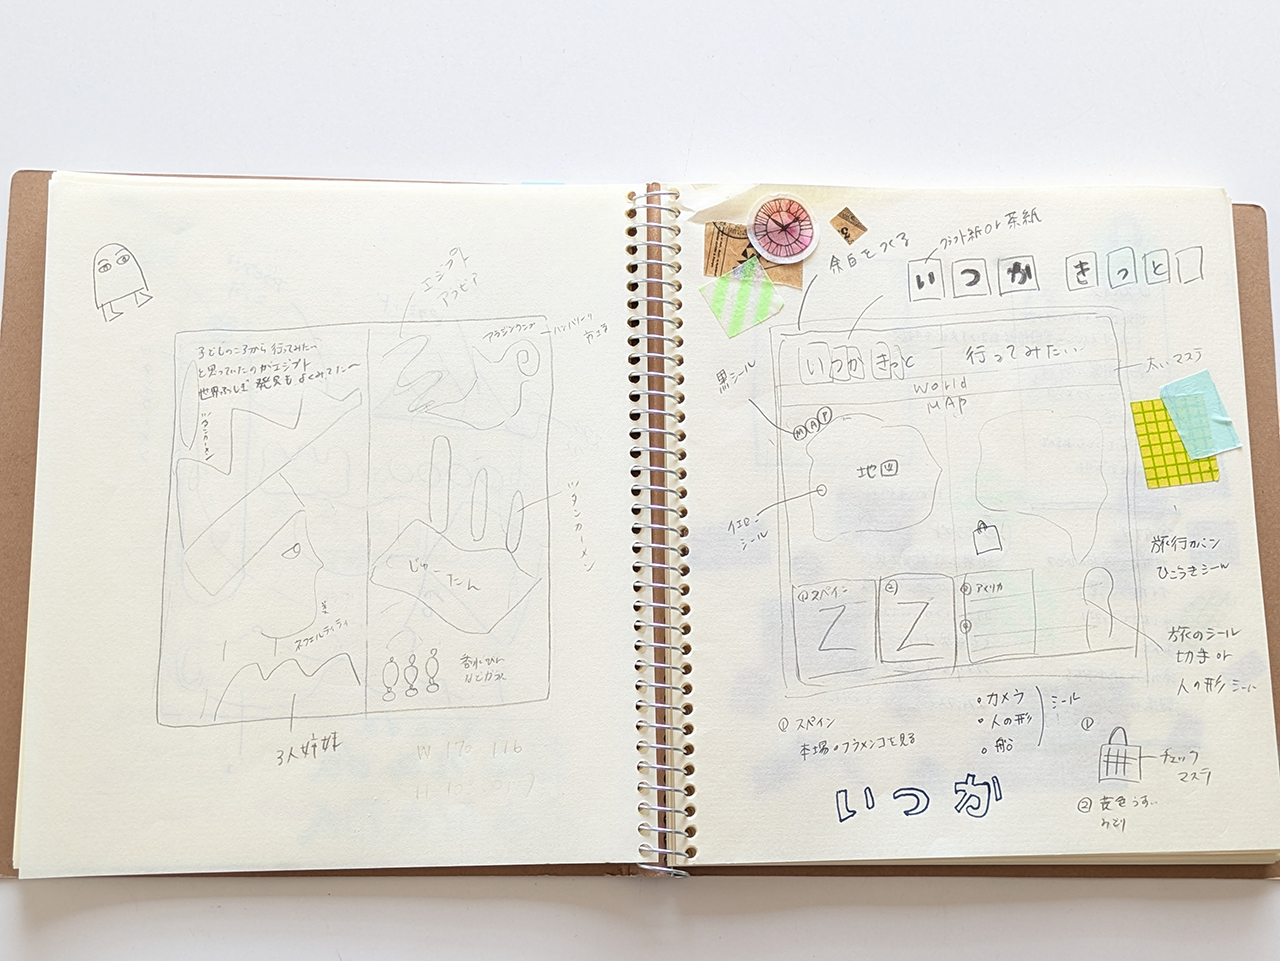 エジプト
アラビア
アラジンランプ
ハンハリーリ
市場
子どものころから行ってみたい
と思っていたのがエジプト
世界ふしぎ発見もよくみてた〜
ツタンカーメン
ツタンカーメン
じゅーたん
ネフェルティティ
香水びん
3人姉妹
W 170 116
余白をつくる
クラフト紙or茶紙
いつか きっと
いつか きっと 行ってみたい
太いマステ
World
MAP
黒シール
MAP
地図
シール
旅行カバン
ひこうきシール
①スペイン
②
③アメリカ
④
旅のシール
切手or
人の形シール
①スペイン
本場のフラメンコを見る
・カメラ
・人の形
・船
シール
①
チェック
マステ
②黄色うすい
みどり
いつか